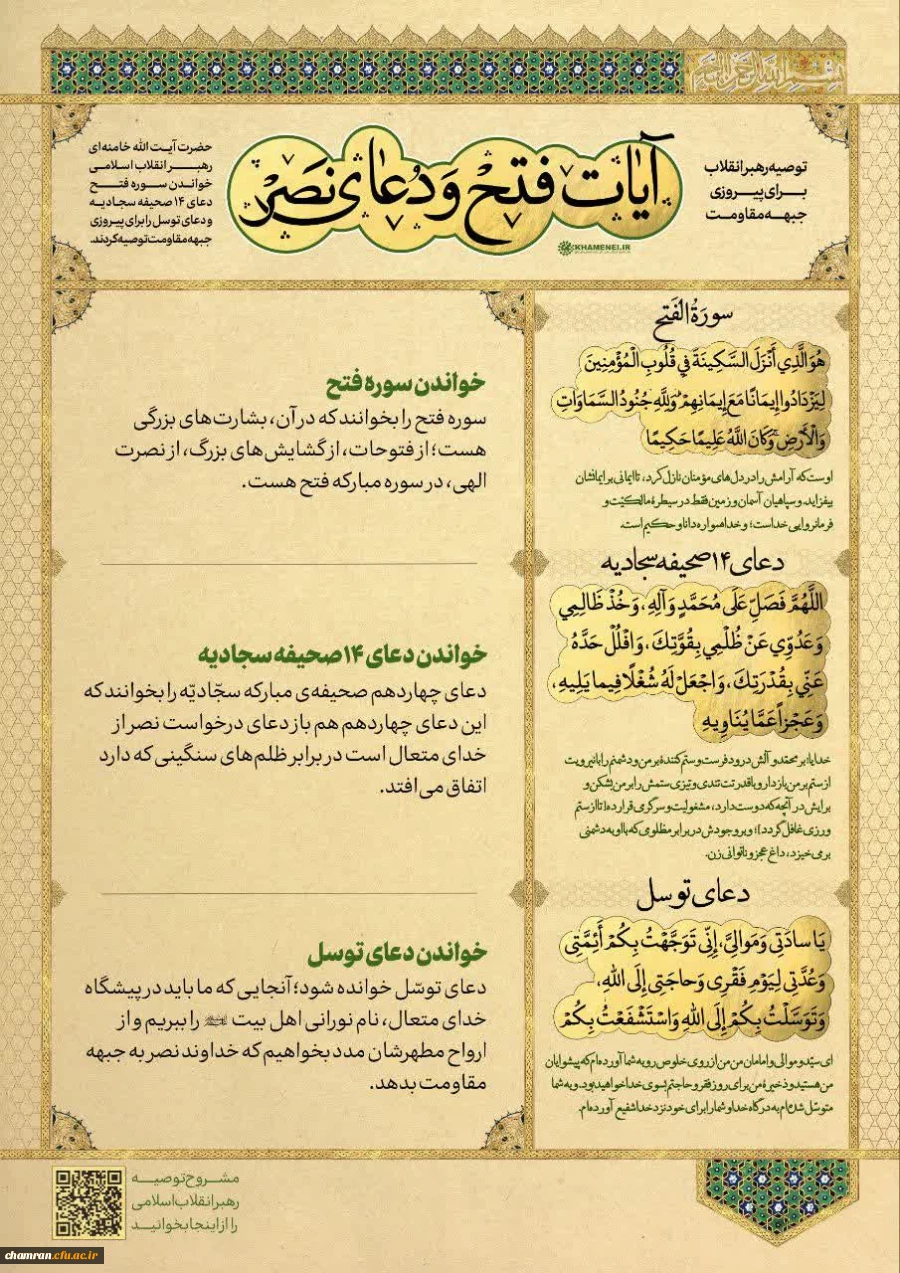 بسم الله الرحمن الرحیم
توصیه رهبر انقلاب
برای پیروزی
جبهه مقاومت
آیات فتح و دعای نصر
KHAMENEI.IR
حضرت آیت الله خامنه‌ای
رهبر انقلاب اسلامی
خواندن سوره فتح
دعای ۱۴ صحیفه سجادیه
و دعای توسل را برای پیروزی
جبهه مقاومت توصیه کردند.
سورَةُ الفَتح
هُوَ الَّذِي أَنْزَلَ السَّكِينَةَ فِي قُلُوبِ الْمُؤْمِنِينَ
لِيَزْدَادُوا إِيمَانًا مَعَ إِيمَانِهِمْ وَلِلَّهِ جُنُودُ السَّمَاوَاتِ
وَالْأَرْضِ وَكَانَ اللَّهُ عَلِيمًا حَكِيمًا
اوست که آرامش را در دل‌های مؤمنان نازل کرد، تا ایمانی بر ایمانشان
بیفزاید و سپاهیان آسمان و زمین فقط در سیطرهٔ مالکیّت و
فرمانروایی خداست؛ و خدا همواره دانا و حکیم است.
خواندن سوره فتح
سوره فتح را بخوانند که در آن، بشارت‌های بزرگی
هست؛ از فتوحات، از گشایش‌های بزرگ، از نصرت
الهی، در سوره مبارکه فتح هست.
دعای ۱۴ صحیفه سجادیه
اللَّهُمَّ فَصَلِّ عَلَى مُحَمَّدٍ وَآلِهِ، وَخُذْ ظَالِمِي
وَعَدُوِّي عَنْ ظُلْمِي بِقُوَّتِكَ، وَافْلُلْ حَدَّهُ
عَنِّي بِقُدْرَتِكَ، وَاجْعَلْ لَهُ شُغْلًا فِيما يَلِيهِ،
وَعَجْزاً عَمَّا يُنَاوِيهِ
خدایا! بر محمّد و آلش درود فرست و ستم‌کنندهٔ بر من و دشمنم را با نیرویت
از ستم بر من باز دار و با قدرتت تندی و تیزی ستمش را بر من بشکن و
برایش در آنچه که دوست دارد، مشغولیت و سرگرمی قرار ده [تا از ستم
ورزی غافل گردد]؛ و بر وجودش در برابر مظلومی که با او به دشمنی
برمی‌خیزد، داغ عجز و ناتوانی زن.
خواندن دعای ۱۴ صحیفه سجادیه
دعای چهاردهم صحیفه‌ی مبارکه سجّادیّه را بخوانند که
این دعای چهاردهم هم باز دعای درخواست نصر از
خدای متعال است در برابر ظلم‌های سنگینی که دارد
اتفاق می‌افتد.
دعای توسل
يَا سادَتِي وَمَوالِيَّ، إِنِّي تَوَجَّهْتُ بِكُمْ أَئِمَّتِي
وَعُدَّتِي لِيَوْمِ فَقْرِي وَحاجَتِي إِلَى اللهِ،
وَتَوَسَّلْتُ بِكُمْ إِلَى اللهِ وَاسْتَشْفَعْتُ بِكُمْ
ای سیّد و موالی و امامان من من از روی خلوص رو به شما آورده‌ام که پیشوایان
من هستید و ذخیرهٔ من برای روز فقر و حاجتم بسوی خدا خواهید بود. و به شما
متوسّل شده‌ام به درگاه خدا و شما را برای خود نزد خدا شفیع آورده‌ام.
خواندن دعای توسل
دعای توسّل خوانده شود؛ آنجایی که ما باید در پیشگاه
خدای متعال، نام نورانی اهل بیت را ببریم و از
ارواح مطهرشان مدد بخواهیم که خداوند نصر به جبهه
مقاومت بدهد.
مشروح توصیه
رهبر انقلاب اسلامی
را از اینجا بخوانید
chamran.cfu.ac.ir